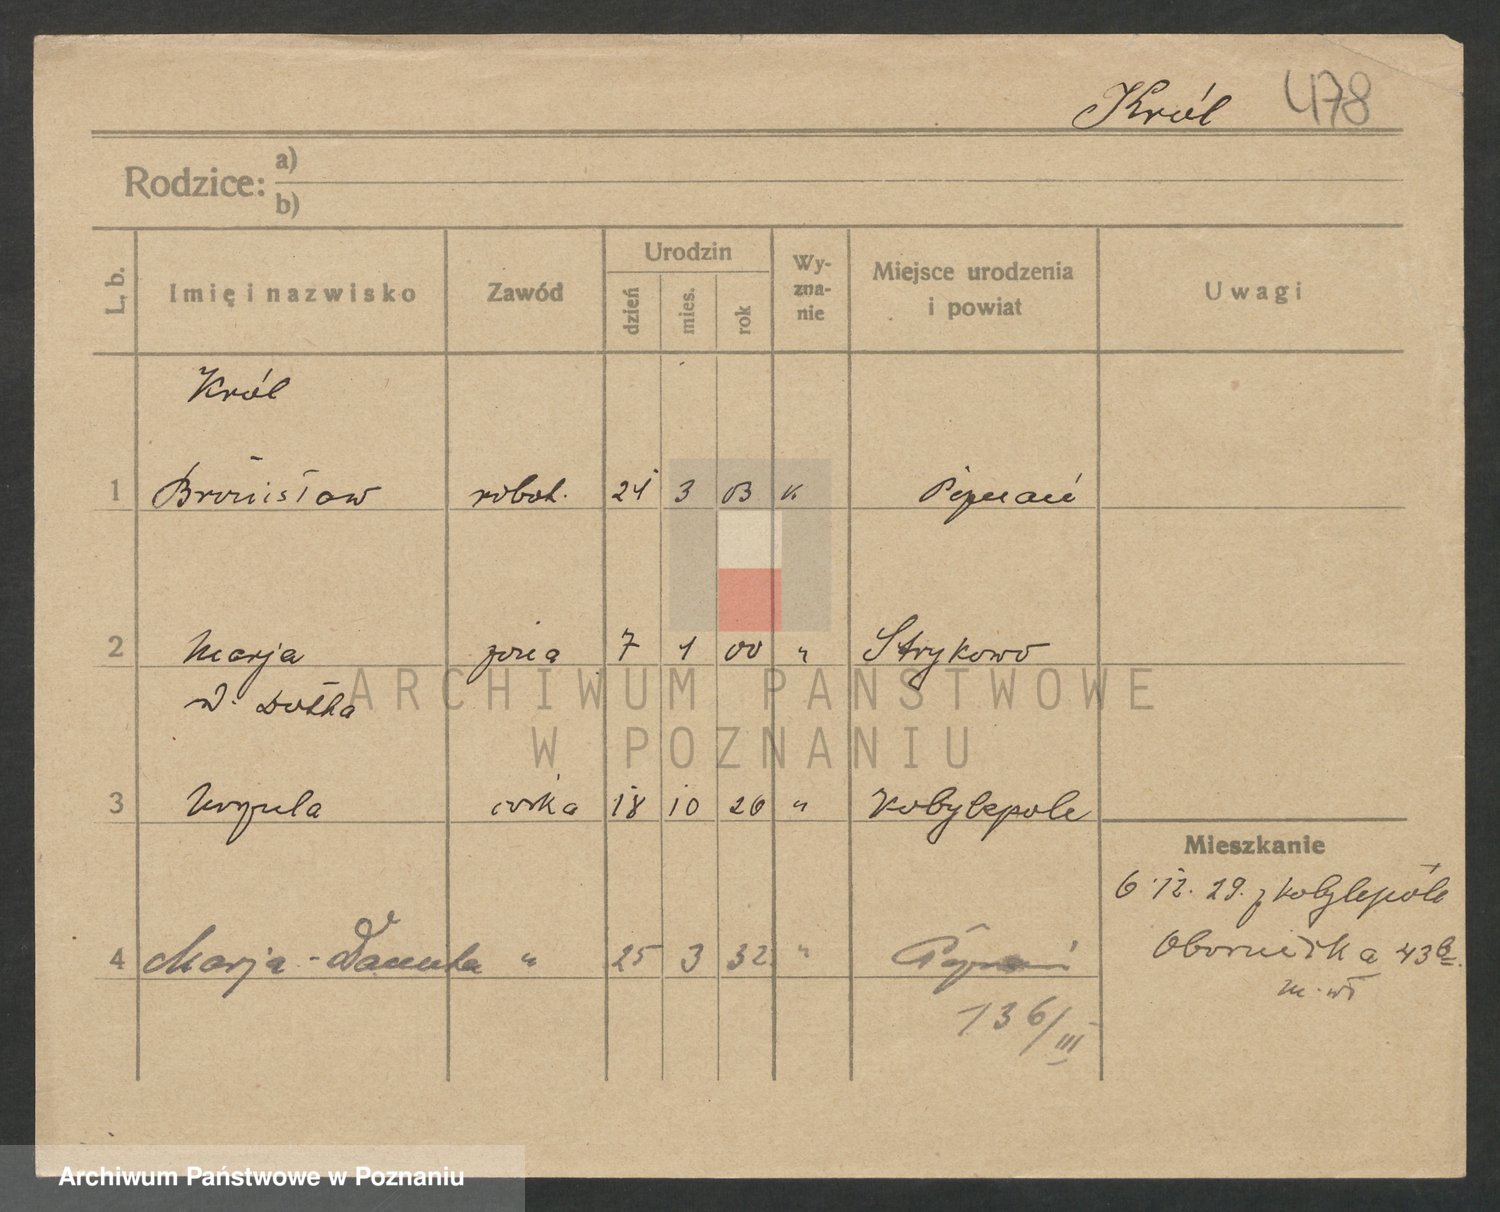 Król 478
Rodzice: a)
b)
L. b. Imię i nazwisko Zawód Urodzin dzień mies. rok Wy-zna-nie Miejsce urodzenia i powiat Uwagi
Król
1 Bronisław robot. 24 3 03 K Poznań
2 Marja żona 7 1 00 " Strykowo
ARCHIWUM PAŃSTWOWE
W POZNANIU
3 Urszula córka 18 10 26 " Kobylepole
Mieszkanie
6.12.29. z Kobylepole
4 Marja-Danuta " 25 3 32 " Poznań
Obornicka 43
136/III
Archiwum Państwowe w Poznaniu